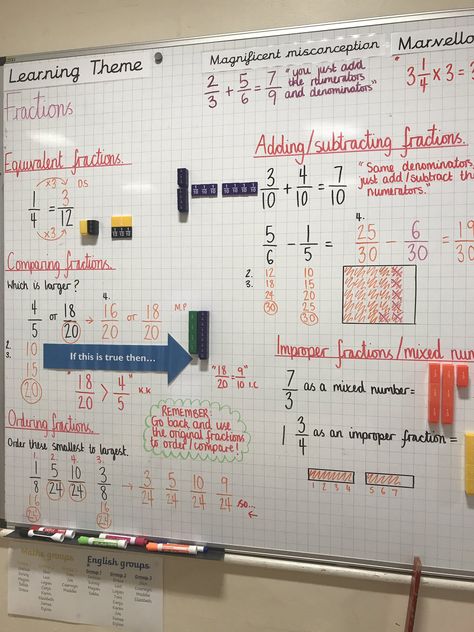 Learning Theme
Magnificent misconception
Marvello
2/3 + 5/6 = 7/9
"you just add the numerators and denominators"
3 1/4 × 3 =
Fractions
Equivalent fractions.
×3
D.S
1/4 = 3/12
×3
Adding/subtracting fractions.
3/10 + 4/10 = 7/10
"Same denominators, just add/subtract the numerators."
5/6 - 1/5 =
4.
25/30 - 6/30 = 19/30
2. 12 10
3. 18 15
24 20
30 25
30
Comparing fractions.
Which is larger?
4.
4/5 or 18/20 → 16/20 or 18/20
M.P
2. 10
3. 15
20
If this is true then...
"18/20 > 4/5" K.K
"18/20 = 9/10" I.C
Improper fractions/mixed num
7/3 as a mixed number=
1 3/4 as an improper fraction =
1 2 3 4 5 6 7
REMEMBER:
Go back and use
the original fractions
to order/compare!
Ordering fractions.
Order these smallest to largest.
1. 2. 4. 3.
1/8 5/24 10/24 3/8
16 16
24 24
→ 3/24 5/24 10/24 9/24 so...
←
Maths groups
English groups
Group 1
Group 2
Group 3